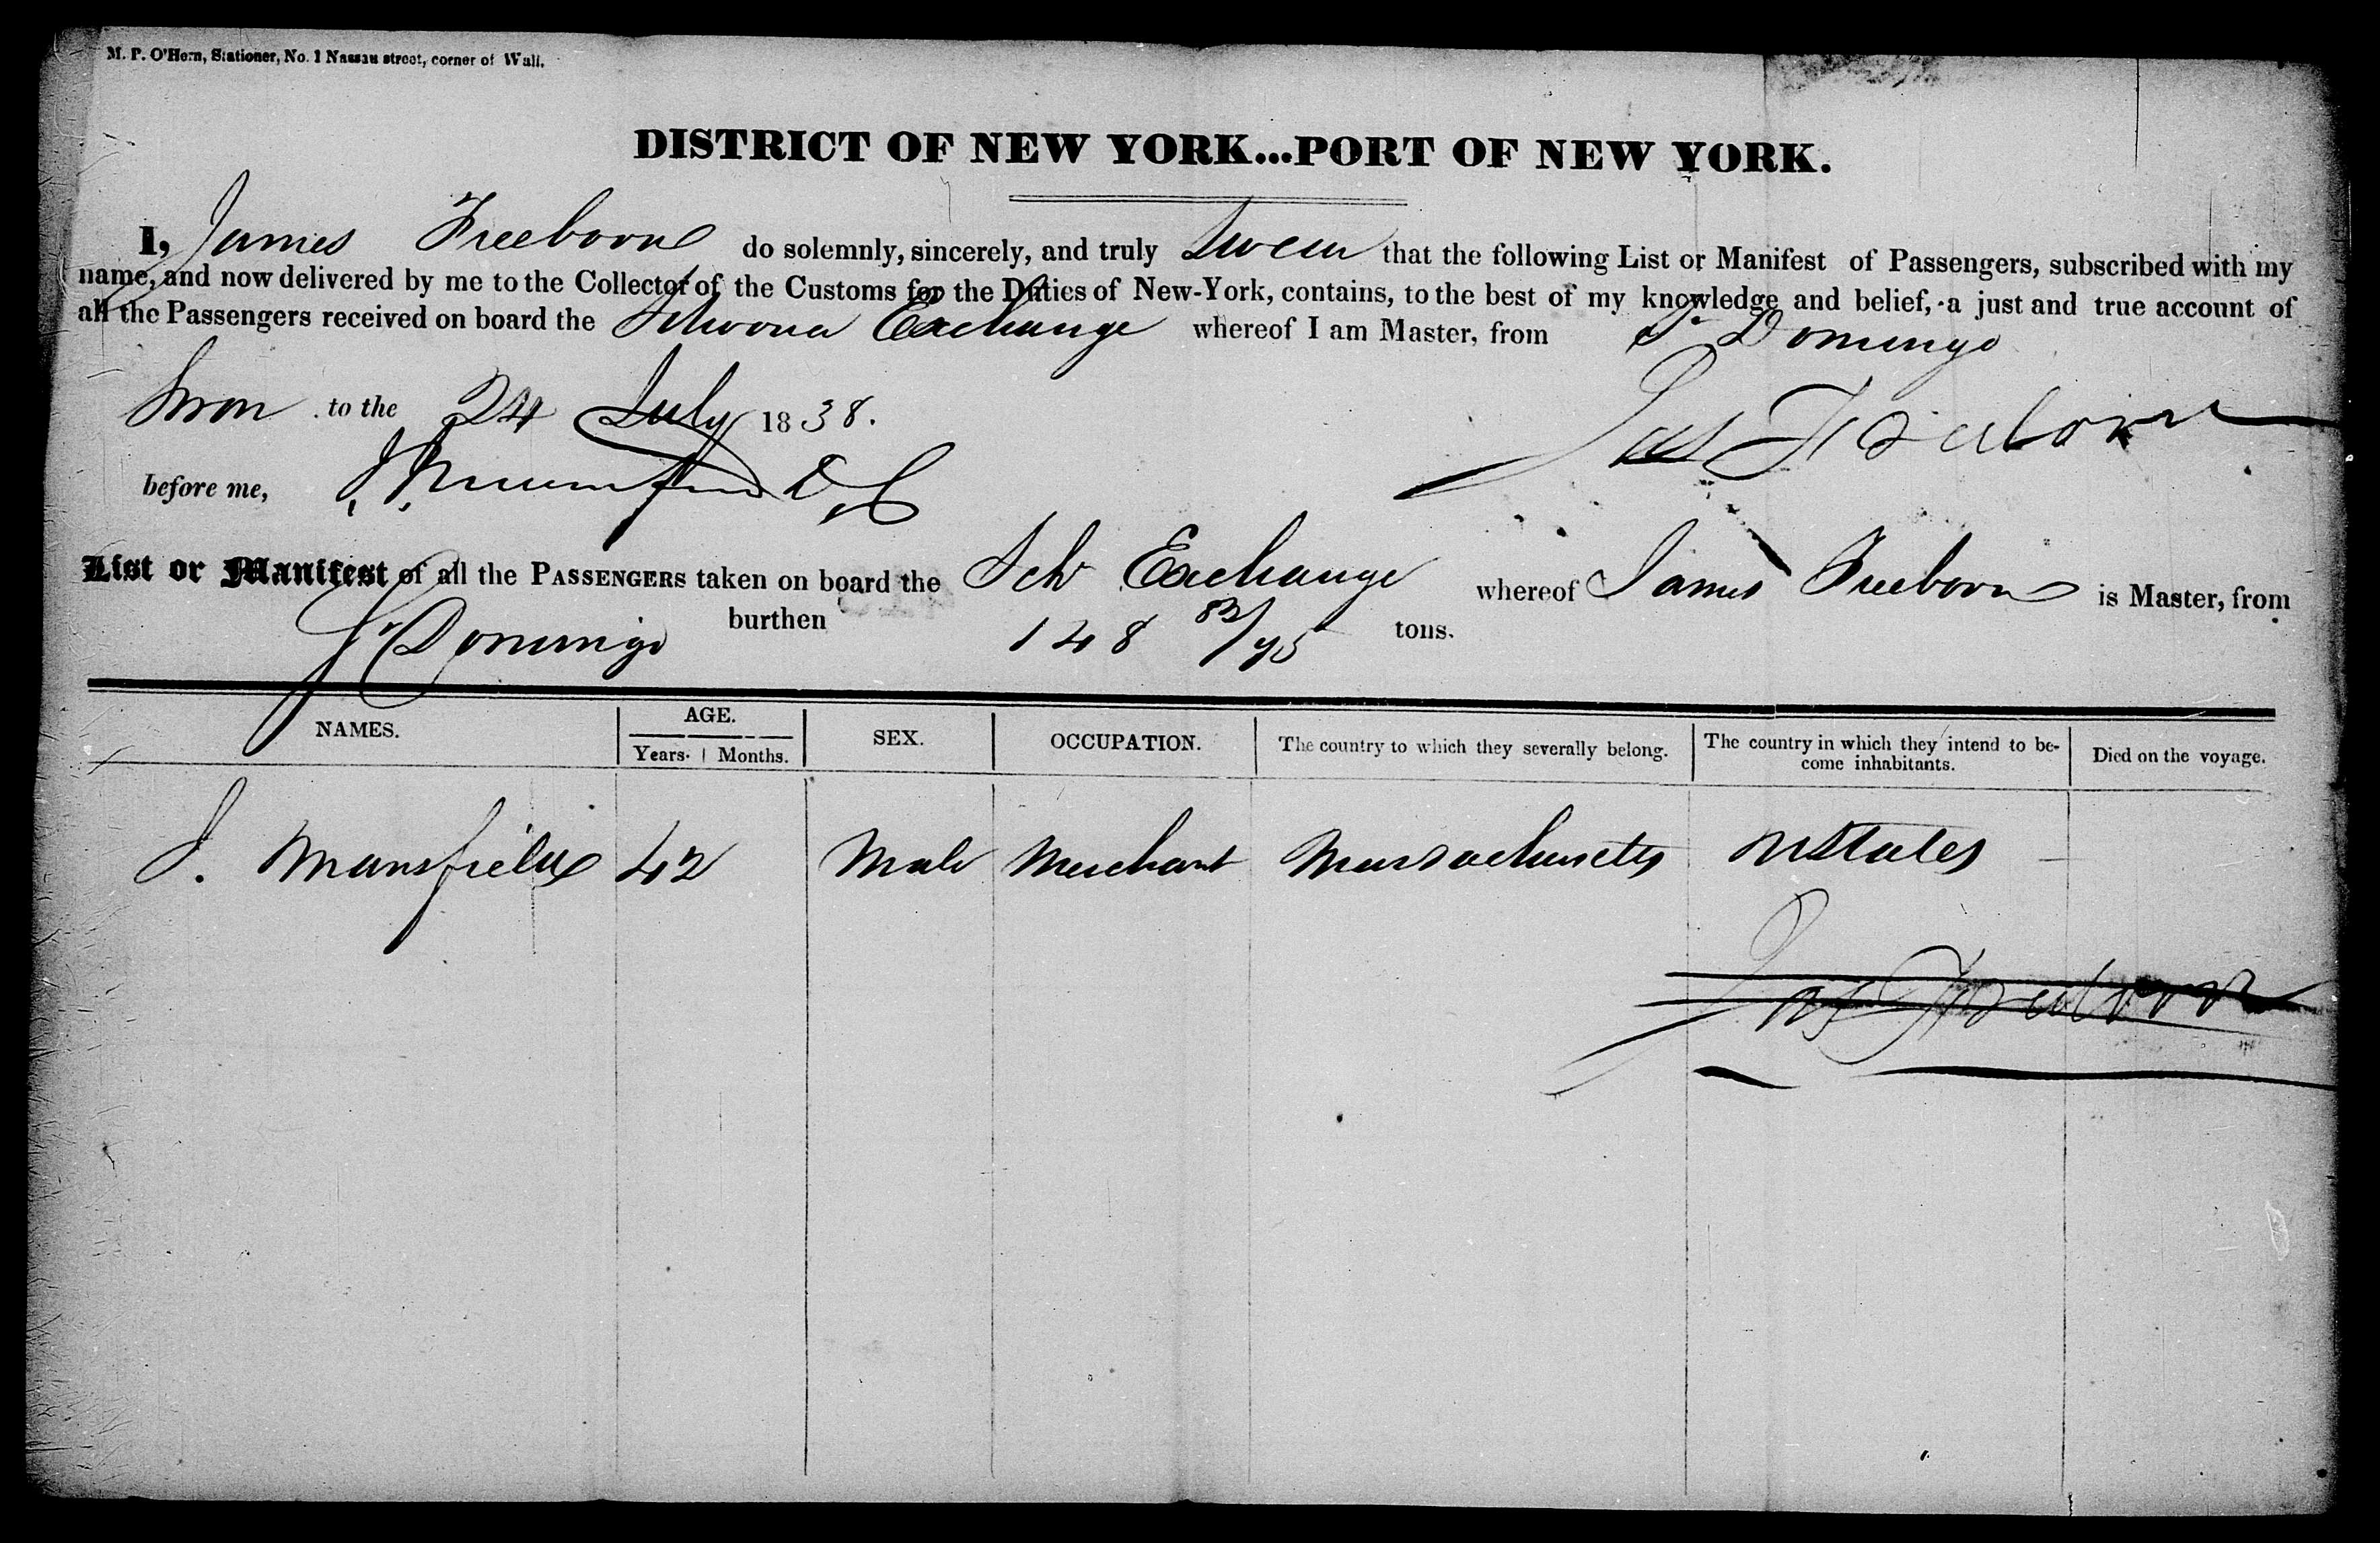 M. P. O'Hern, Stationer, No. 1 Nassau street, corner of Wall.
DISTRICT OF NEW YORK...PORT OF NEW YORK.
I, James Freeborn do solemnly, sincerely, and truly Swear that the following List or Manifest of Passengers, subscribed with my
name, and now delivered by me to the Collector of the Customs for the Duties of New-York, contains, to the best of my knowledge and belief, a just and true account of
all the Passengers received on board the Schooner Exchange whereof I am Master, from St Domingo
Sworn to the 24 July 1838. Jas Freeborn
before me, J Mumford D C
List or Manifest of all the PASSENGERS taken on board the Schr Exchange whereof James Freeborn is Master, from
St Domingo burthen 148 82/95 tons.
NAMES. AGE. Years. Months. SEX. OCCUPATION. The country to which they severally belong. The country in which they intend to become inhabitants. Died on the voyage.
J. Mansfield 42 Male Merchant Massachusetts UStates
Jas Freeborn